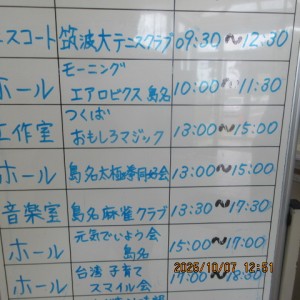 ニスコート 筑波大テニスクラブ 09:30~12:30
モーニング
ホール エアロビクス 島名 10:00~11:30
つくば
工作室 おもしろマジック 13:00~15:00
ホール 島名太極拳同好会 13:00~15:00
音楽室 島名麻雀クラブ 13:30~17:30
元気でいよう会
ホール 島名 15:00~17:00
台湾子育て
ホール スマイル会 17:00~18:30
2025/10/07 12:51